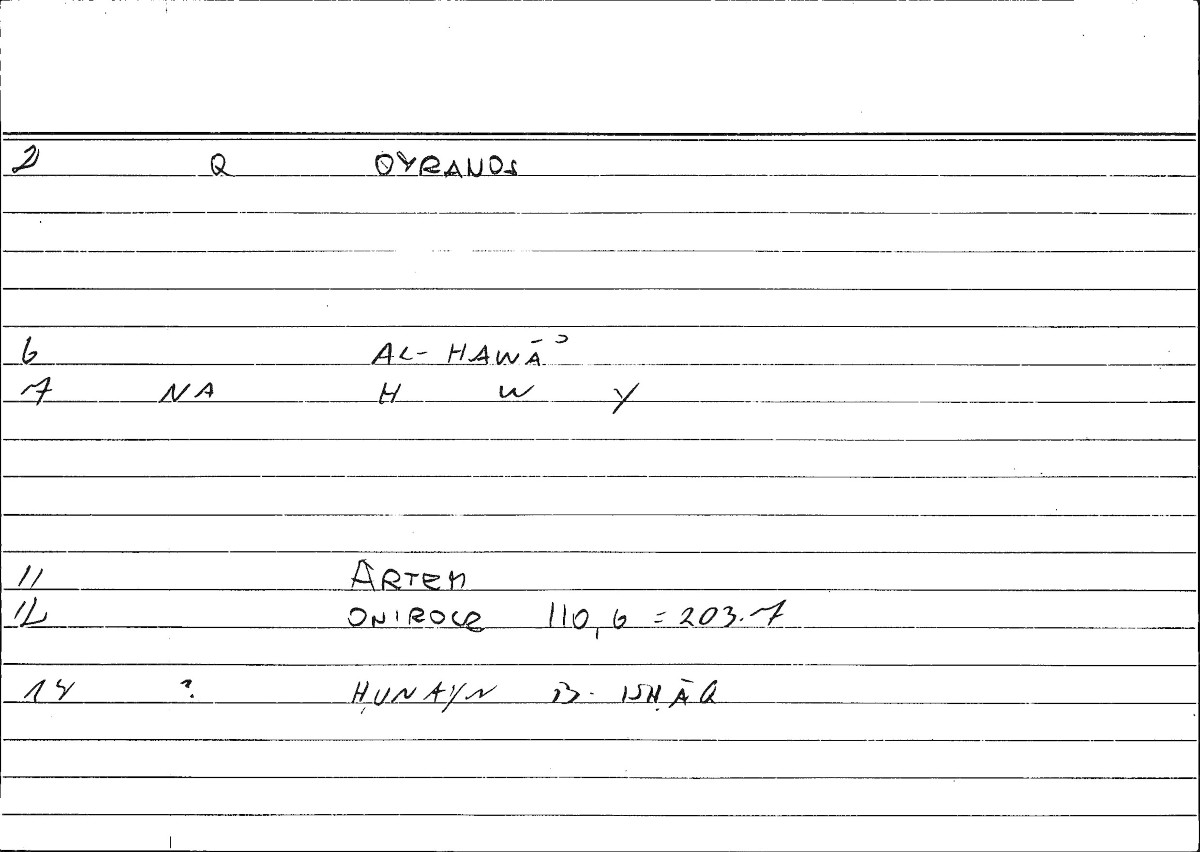 2 Q OYRANOS
6 AL-HAWĀʾ
7 NA H W Y
11 ARTEM
12 ONIROCR 110,6 = 203.7
14 ? ḤUNAYN B. ISḤĀQ